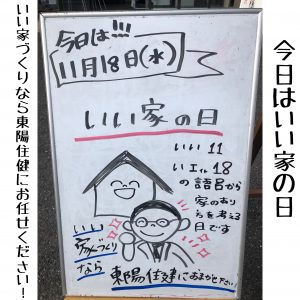 今日はいい家の日
今日は!!!
11月18日(水)
いい家の日
いい 11
いエル 18
の語呂から
家のあり
方を考える
日です
いい
家づくり
なら
東陽住建におまかせ下さい!
いい家づくりなら東陽住健にお任せください！